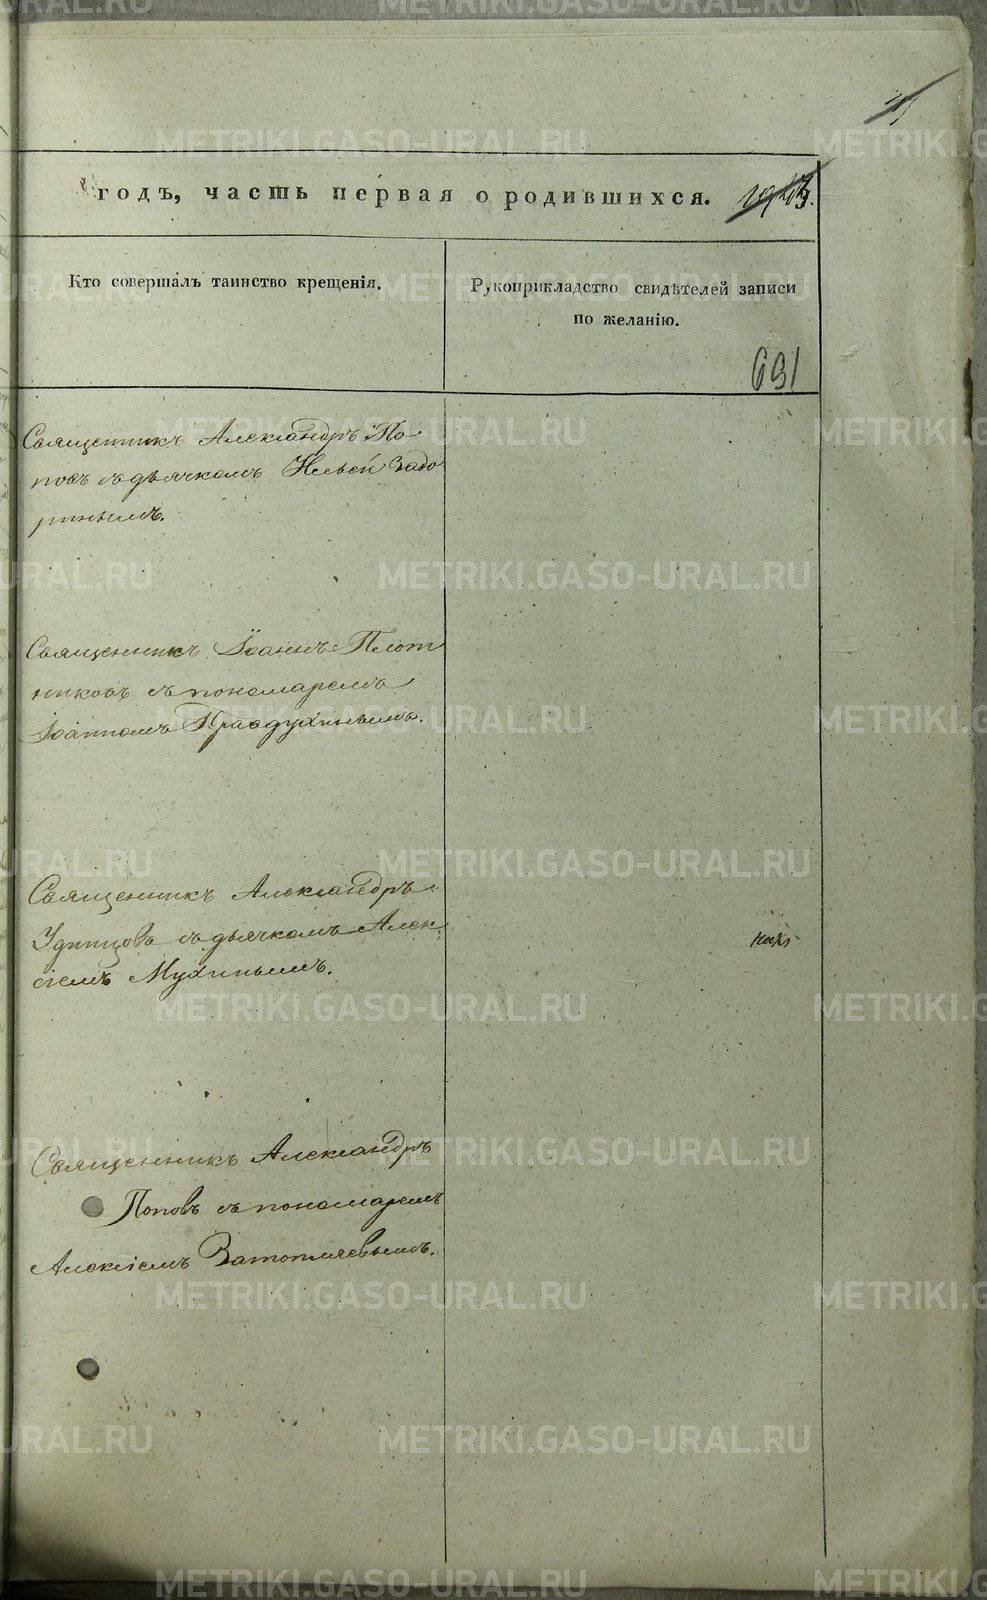 годъ, часть первая о родившихся.
Кто совершалъ таинство крещенія.
Рукоприкладство свидѣтелей записи
по желанію.
691
Священникъ Александръ По
повъ съ дьячкомъ Ильей Задо
ринымъ.
Священникъ Іоаннъ Плот
никовъ съ пономаремъ
Іоанномъ Правдухинымъ.
Священникъ Александръ
Удинцовъ съ дьячкомъ Алек
сіемъ Мухинымъ.
Священникъ Александръ
Поповъ съ пономаремъ
Алексіемъ Затопляевымъ.
METRIKI.GASO-URAL.RU